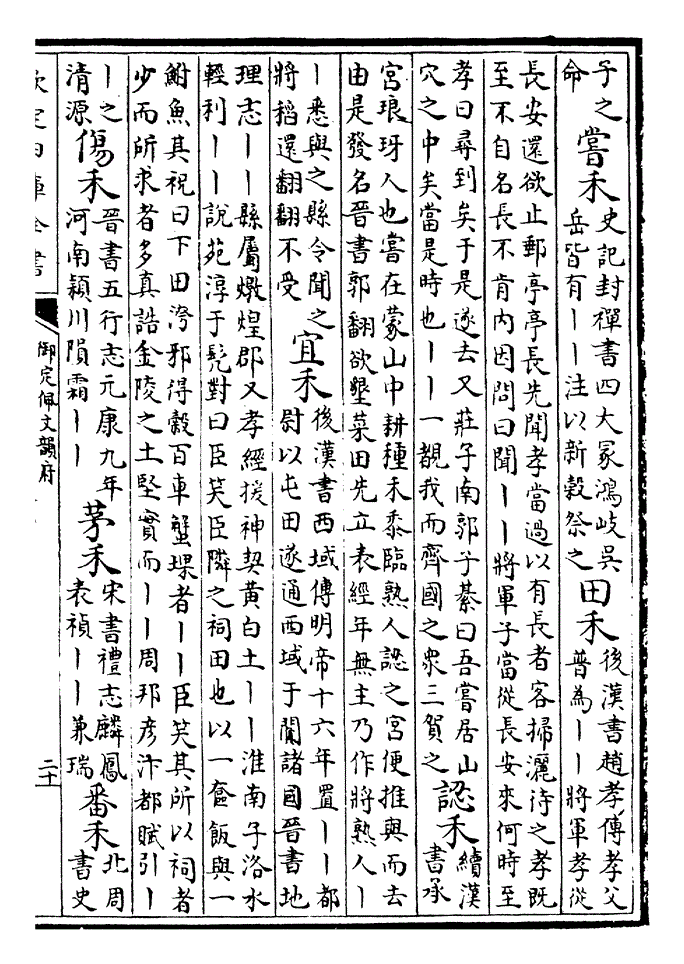 子之
命
嘗禾
史記封禪書四大冢鴻岐吳
岳皆有丨丨注以新穀祭之
田禾
後漢書趙孝傳孝父
普為丨丨將軍孝從
長安還欲止郵亭亭長先聞孝當過以有長者客掃灑待之孝既
至不自名長不肯内因問曰聞丨丨將軍子當從長安來何時至
孝曰尋到矣于是遂去又莊子南郭子綦曰吾嘗居山
穴之中矣當是時也丨丨一覩我而齊國之眾三賀之
認禾
續漢
書承
宮琅玡人也嘗在蒙山中耕種禾黍臨熟人認之宮便推與而去
由是發名晉書郭翻欲墾菜田先立表經年無主乃作將熟人丨
丨悉與之縣令聞之
將稻還翻翻不受
宜禾
後漢書西域傳明帝十六年置丨丨都
尉以屯田遂通西域于闐諸國晉書地
理志丨丨縣屬燉煌郡又孝經援神契黃白土丨丨淮南子洛水
輕利丨丨說苑淳于髡對曰臣笑臣隣之祠田也以一奩飯與一
鮒魚其祝曰下田洿邪得穀百車蟹堁者丨丨臣笑其所以祠者
少而所求者多真誥金陵之土堅實而丨丨周邦彥汴都賦引丨
丨之
清源
傷禾
晉書五行志元康九年
河南潁川隕霜丨丨
茅禾
宋書禮志麟鳳
表禎丨丨兼瑞
番禾
北周
書史
欽定四庫全書
御定佩文韻府
二十